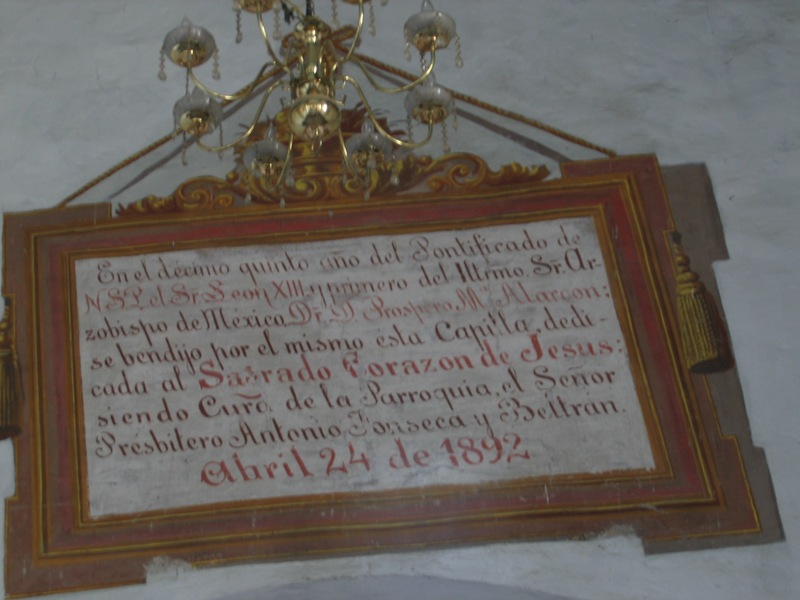 En el décimo quinto año del Pontificado de
N.S.P. el Sr. Leon XIII y primero del Iltrmo. Sr. Ar-
zobispo de México, Dr. D. Prospero Mª Alarcon:
se bendijo por el mismo ésta Capilla, dedi-
cada al Sagrado Corazon de Jesus:
siendo Cura de la Parroquia, el Señor
Présbitero Antonio Fonseca y Beltrán.
Abril 24 de 1892